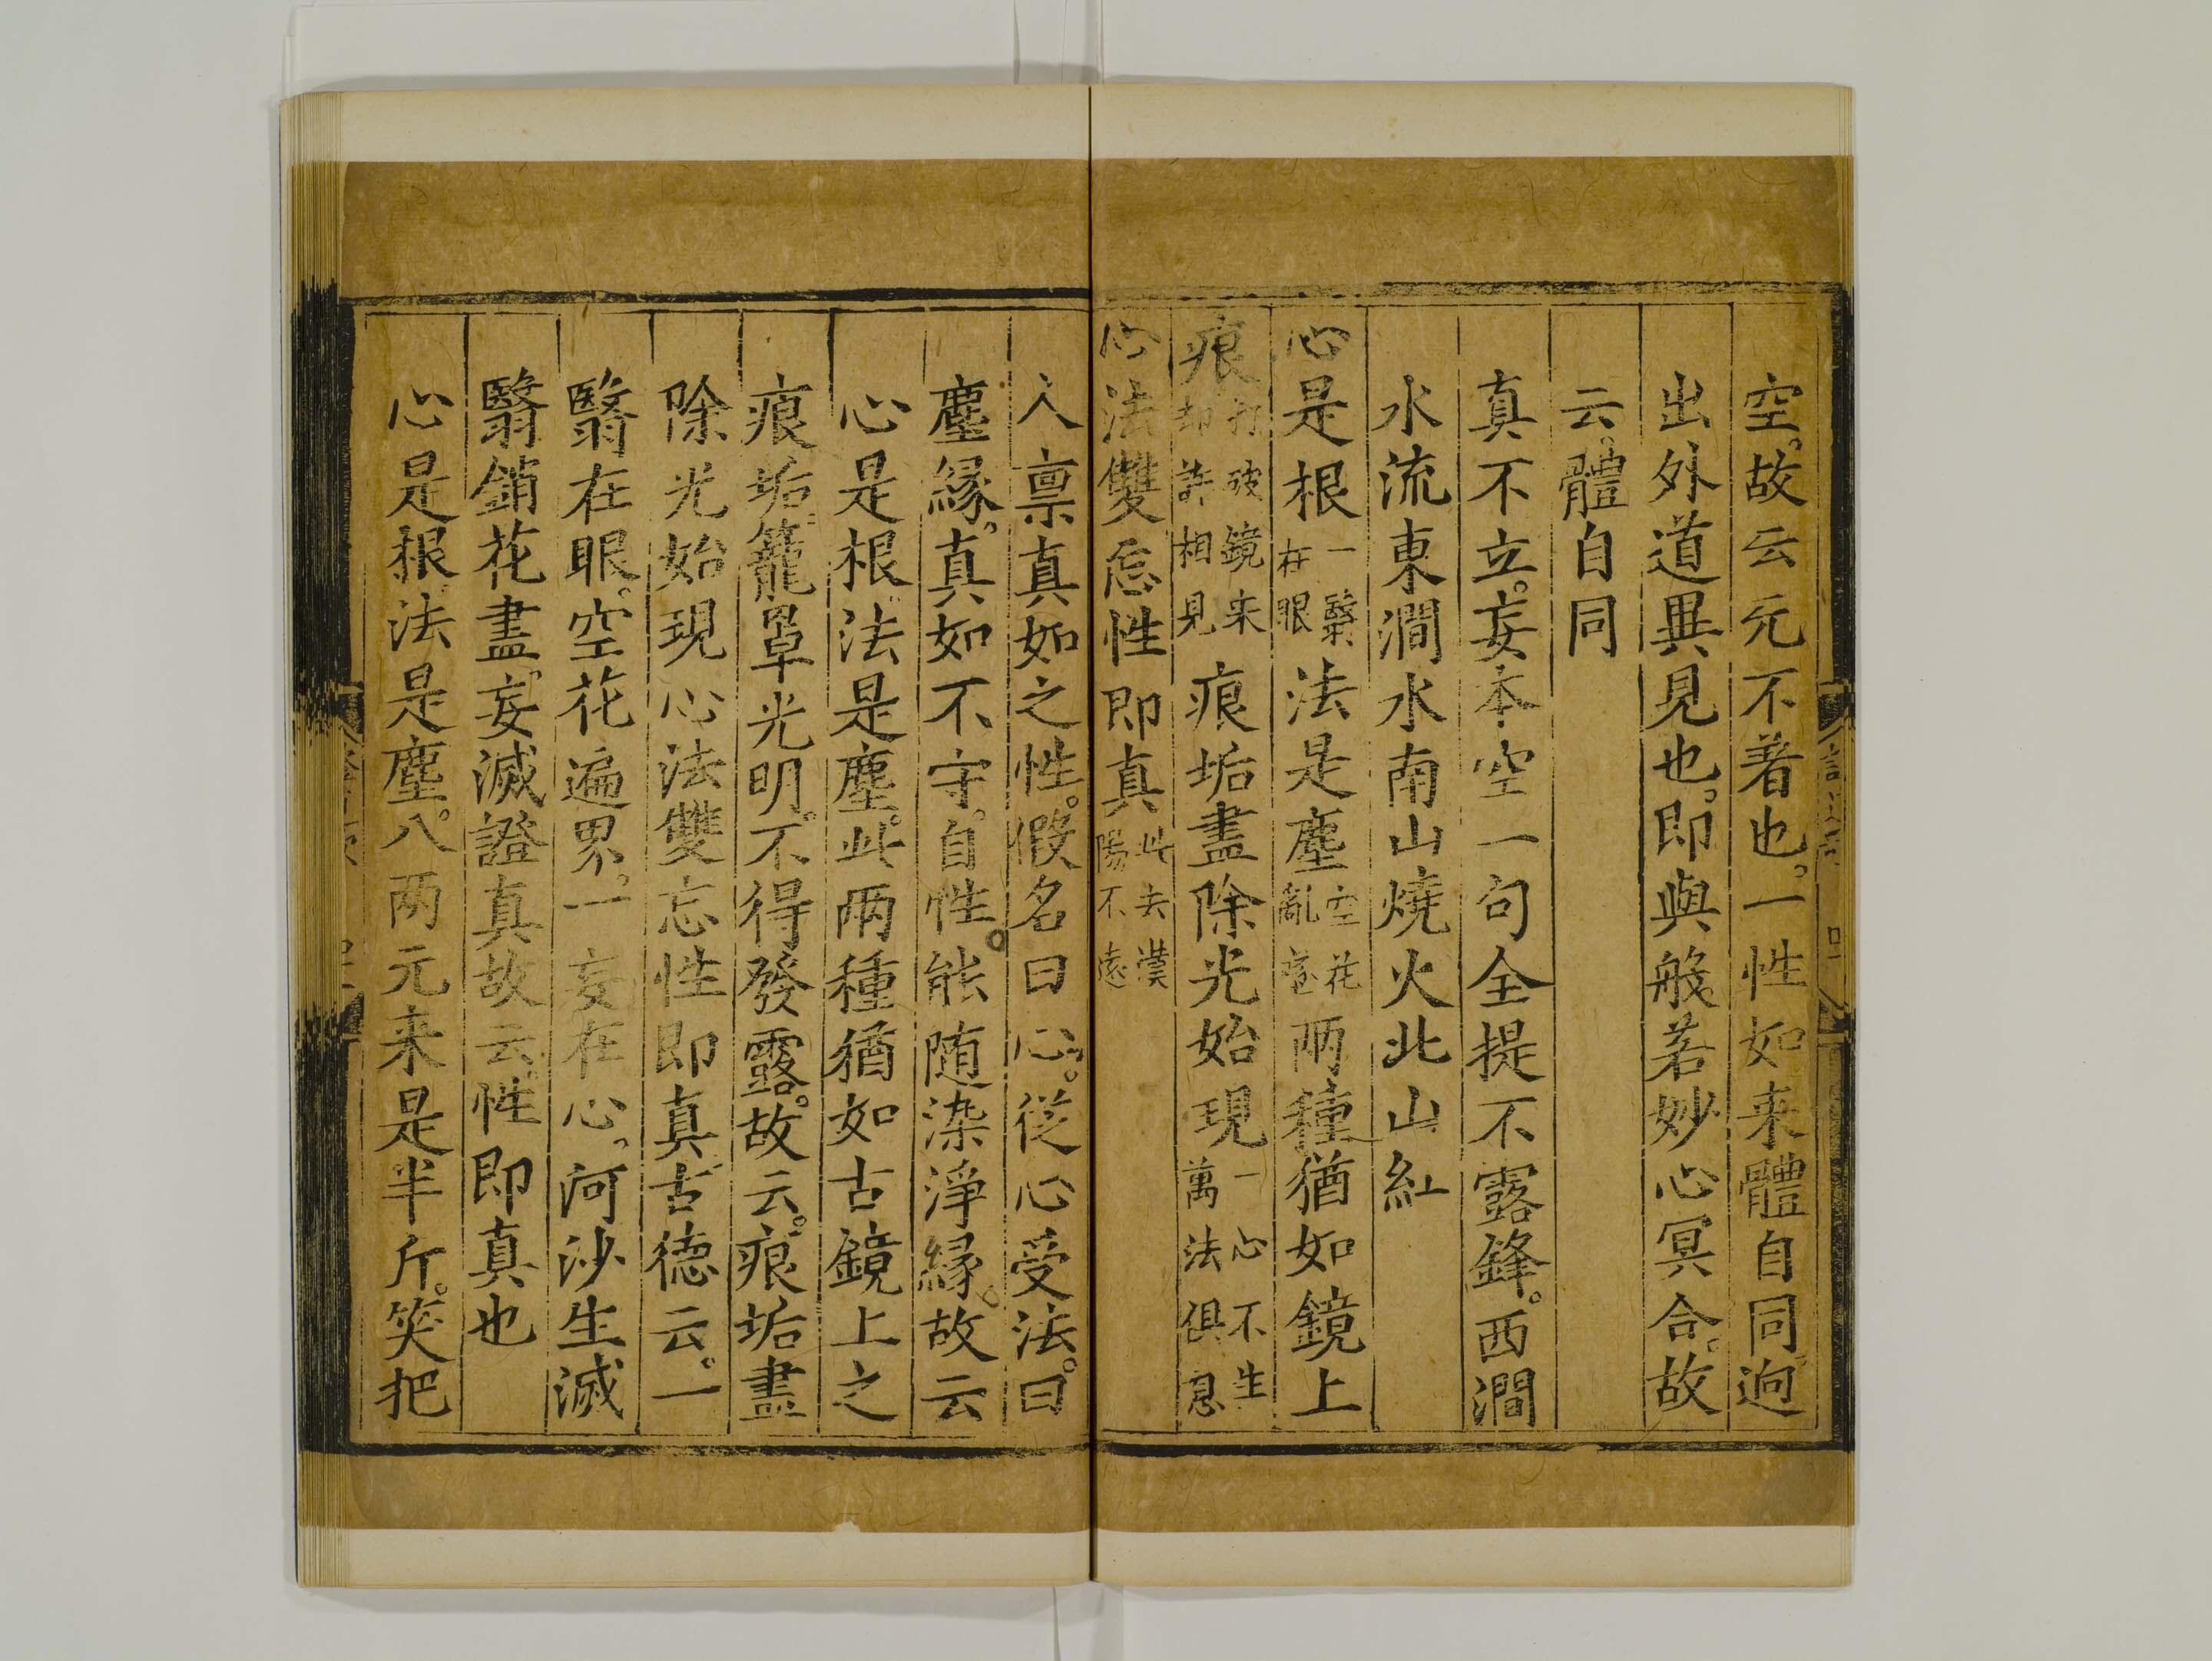 空。故云元不着也。一性如来體自同。迥
出外道異見也。即與般若妙心冥合。故
云。體自同
真不立。妄本空一句全提不露鋒。西澗
水流東澗水南山燒火北山紅
心是根一翳在眼法是塵空花亂墜兩種猶如鏡上
痕打破鏡来却許相見痕垢盡除光始現一心不生萬法俱息
心法雙忘性即真此去漢陽不遠
人禀真如之性。假名曰心。從心受法。曰
塵緣。真如不守。自性。能随染淨緣。故云
心是根。法是塵。此兩種猶如古鏡上之
痕垢。籠罩光明。不得發露。故云。痕垢盡
除光始現心法雙忘性即真。古德云。一
翳在眼。空花遍界。一妄在心。河沙生滅
翳銷花盡。妄滅證真故云。性即真也
心是根。法是塵。八两元来是半斤。笑把